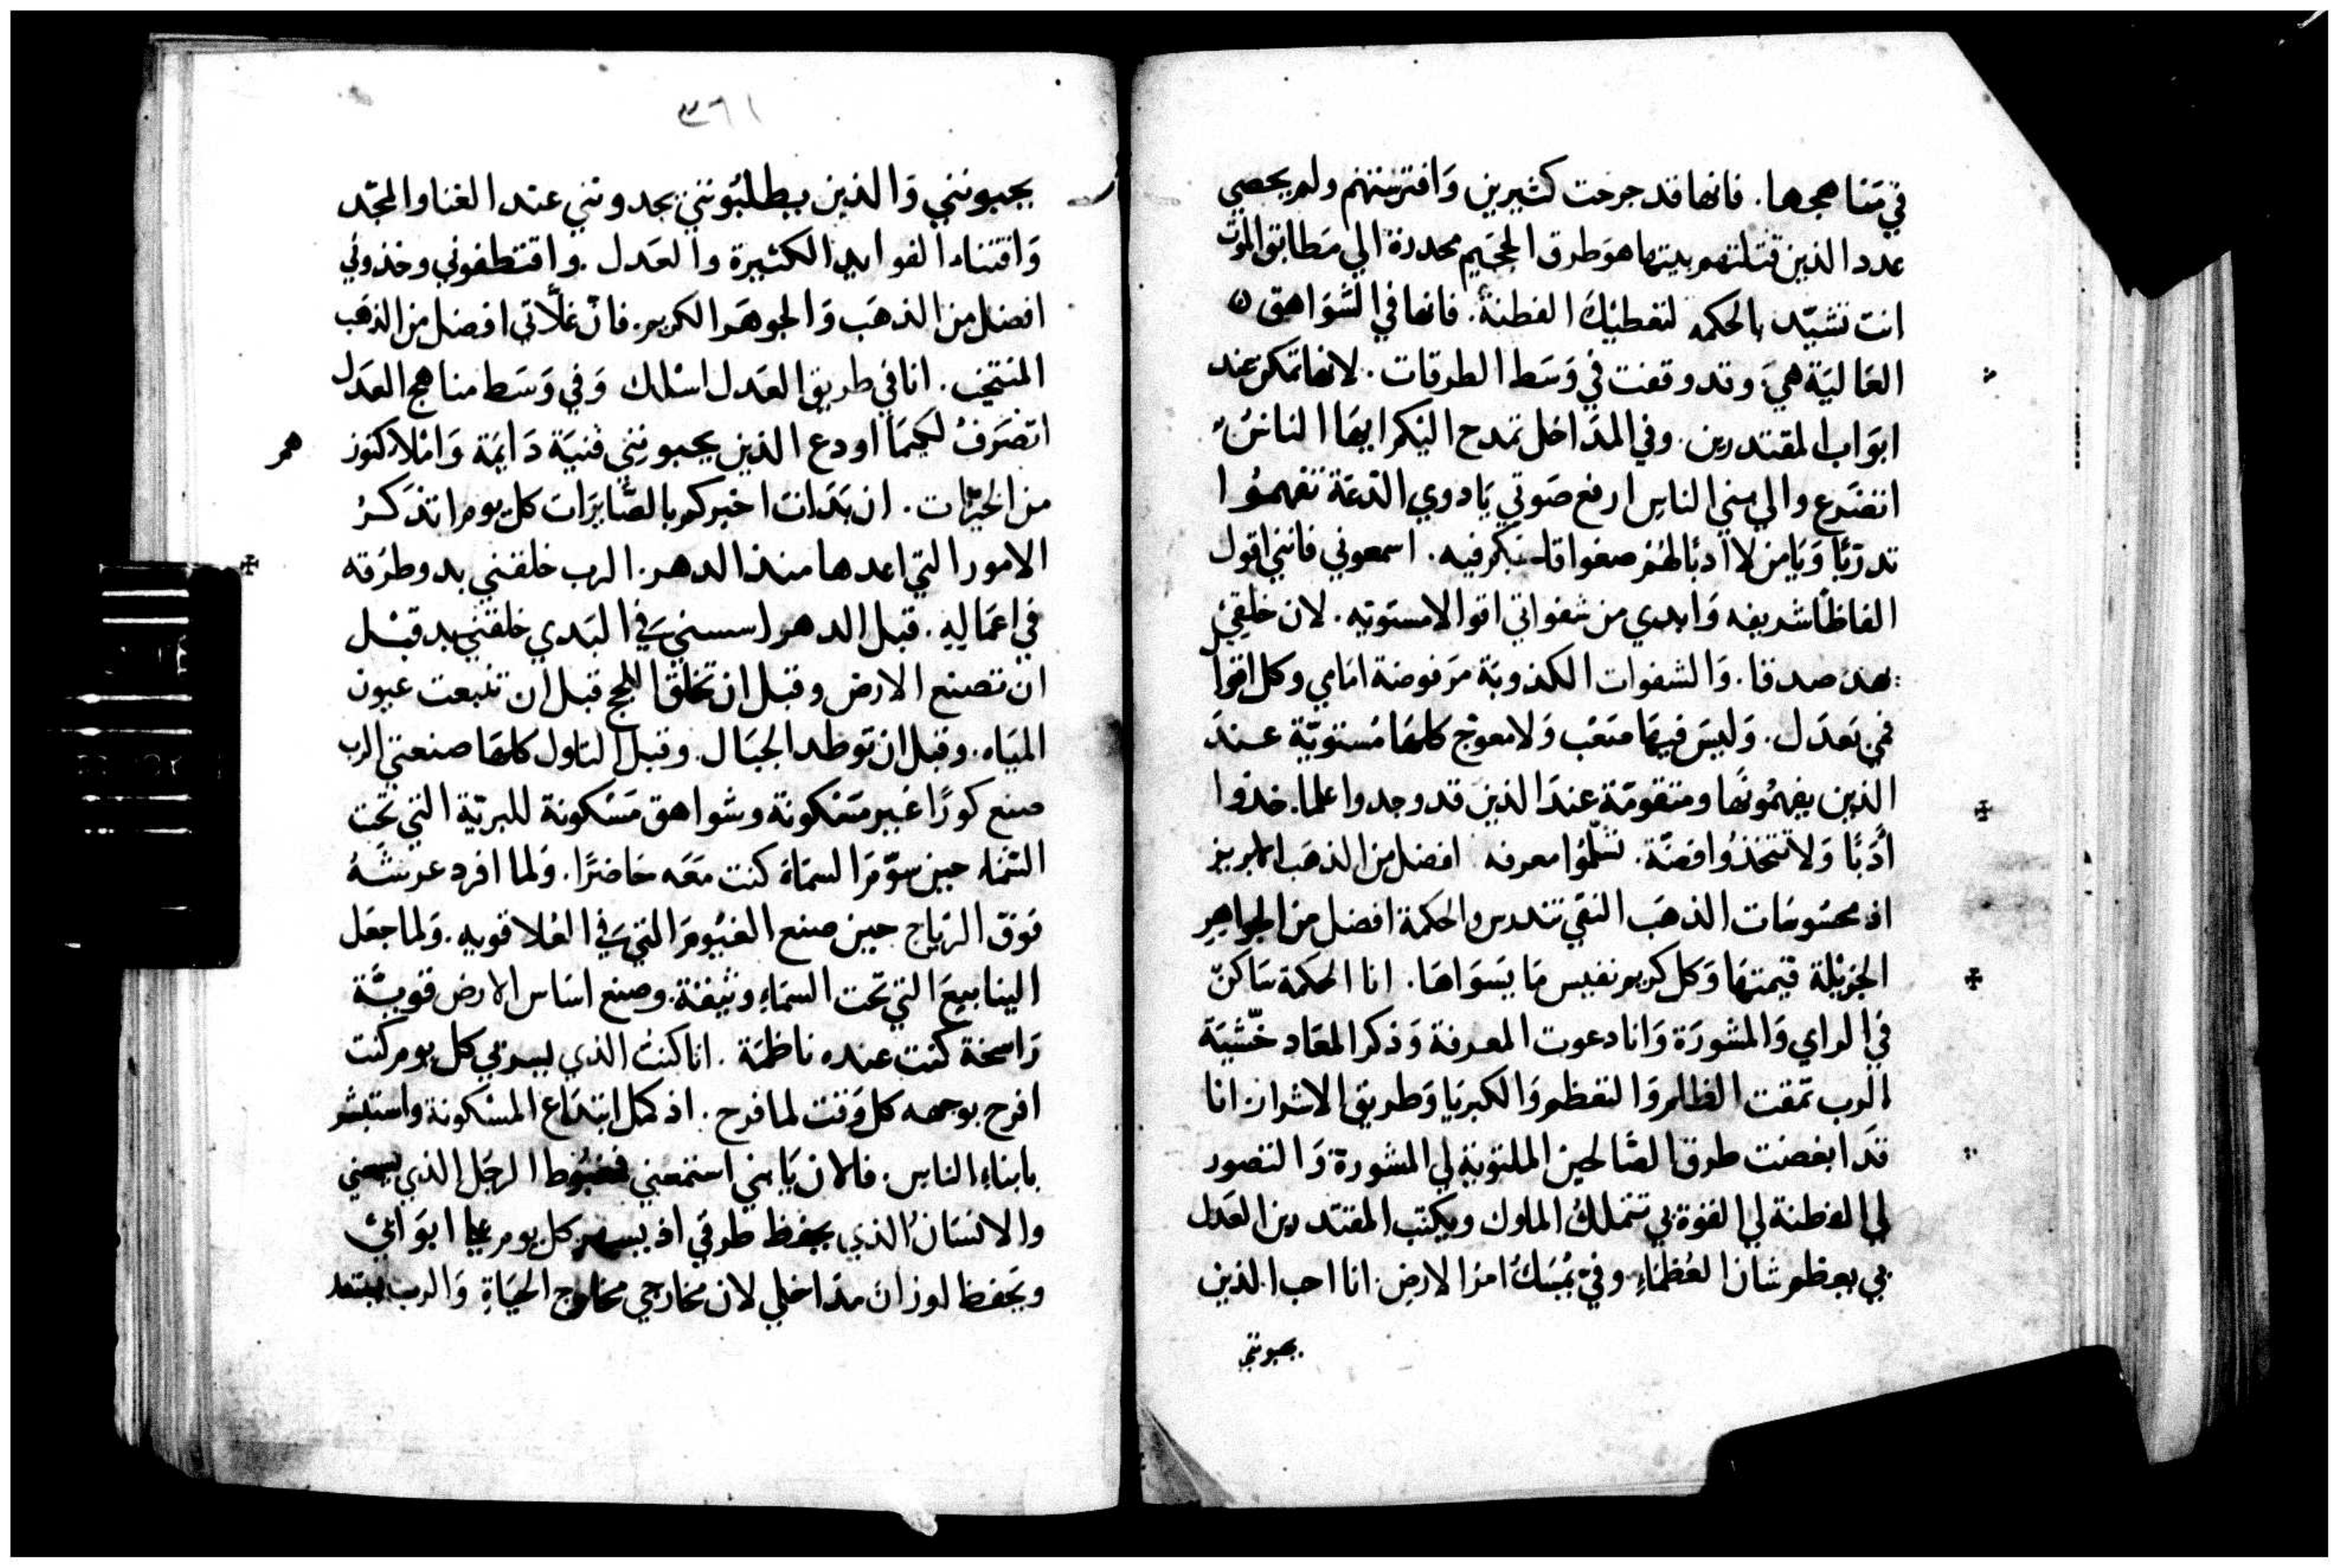 في مَناهجها. فانها قد جرحت كثيرين وَافترستهم ولم يحصي
عدد الذين قتلتهم بيتها هوَ طرق الجحَيم محدرة الي مَطابق الموت
انت تشيّد بالحكمه لتعطيْك الفطنة. فانها في الشَواهق
العَاليَة هيَ وقد وقفت في وَسَط الطرقات. لانها تمكن عند
ابوَاب المقتدرين. وفي المدَاخل تمدح اليْكم ايهَا الناسُ
اتضَرع والي بني الناس ارفع صَوتي يَا دوي الدّعَة تفهمُوا
تدرّبًا وَيَا من لا ادبًا لهُم صغوا قلبكم فيه. اسمعوني فانني اقول
الفاظًا شريفه وَابدي من شفواتي اقوالا مستويه. لان خلقي
يهد صدقا. وَالشفوات الكذوبَة مَرفوضة امَامي وكل اقوال
فمي بَعدَل. وَليسَ فيهَا صَعْب وَلا معوّج كلهَا مُستويّة عند
الذين يفهمُونهَا ومتقومَة عندَ الذين قد وجدوا علما. خذوا
أدَبًا وَلا تتخذُوا فضّة. تسلّمُوا معرفه افضل من الذهَب الابريز
اذ محسُوسَات الذهَب النقي تندرس والحكمة افضل من الجواهر
الجزيْلة قيمتهَا وَكل كريم نفيس مَا يسَوَاهَا. انا الحكمَة سَاكنّ
في الراي وَالمشورَة وَانا دعوت المعرفة وَذكر المعَاد خشّيَة
الرب تمّقت الظالم وَالتعظم وَالكبريَا وَطريق الاشرار انا
قدَ ابغضت طرق الصَّالحين الملتويَة لي المشورة وَالتصور
لي الفظنة لي القوة بي تتملك الملوك ويكتب المقتدرين العدل
بي يعظم شان العُظمَاءِ وفيّ يُمسَكُ امرَ الارض. انا احب الذين
يحبونني
٣٦١
يحبونني وَالذين يطلبُونني يجدونني عند الغنا والمجّد
وَاقتناء الفوايد الكثيرة والعدل. واقتطفوني وخذوني
افضل من الذهَب وَالجوهَر الكريم. فانّ غلّاتي افضل من الذهَب
المنتخب. انا في طريق العَدل اسْلك وَفي وَسَط مناهج العَدل
اتصَرفُ لكيمَا اودع الذين يحبونني قنيَة دَايمَة وَامْلا كنوزهم
من الخيْرَات. ان بَدَات اخبركم بالصّايرَات كل يوم اتذكرُ
الامور التي اعدها منذ الدهر. الرب خلقني بدو طرقه
في اعمَاله. قبل الدهر اسسني في البَدي خلقني بد قبْل
ان تصنع الارض وقبل ان تخلق اللجج قبل ان تنبعت عيون
الميَاه. وقبل ان توطد الجبَال. وقبل التلول كلهَا صنعتني الرب
صنع كورًا غير مَسْكونة وشواهق مَسْكونة للبريّة التي تحت
السّمَاءِ حين سوّمَ السمَاءَ كنت مَعَه حَاضرًا. وَلما افرد عرشهُ
فوقَ الرّيَاح حين صنع الغيُومَ التي في العُلا قويه. وَلما جعَل
الينابيعَ التي تحت السمَاءِ وثيقة. وصنع اسَاس الارض قويّة
رَاسخة كنت عنده ناظمَة. انا كنت الذي يسر بي كل يوم كنت
افرح بوجهه كل وَقت لما فرح. اذ كمل ابتداع المسْكونة واستبشر
بابناءِ الناس. فالان يَا بني استمعني فمغبُوط الرجَل الذي يسمعني
والانسَان الذي يحفظ طرقي اذ يسهر كل يوم علي ابوَابي
ويحفظ لوزات مدَاخلي لان مخارجي مخارج الحيَاةِ وَالرب يستعد